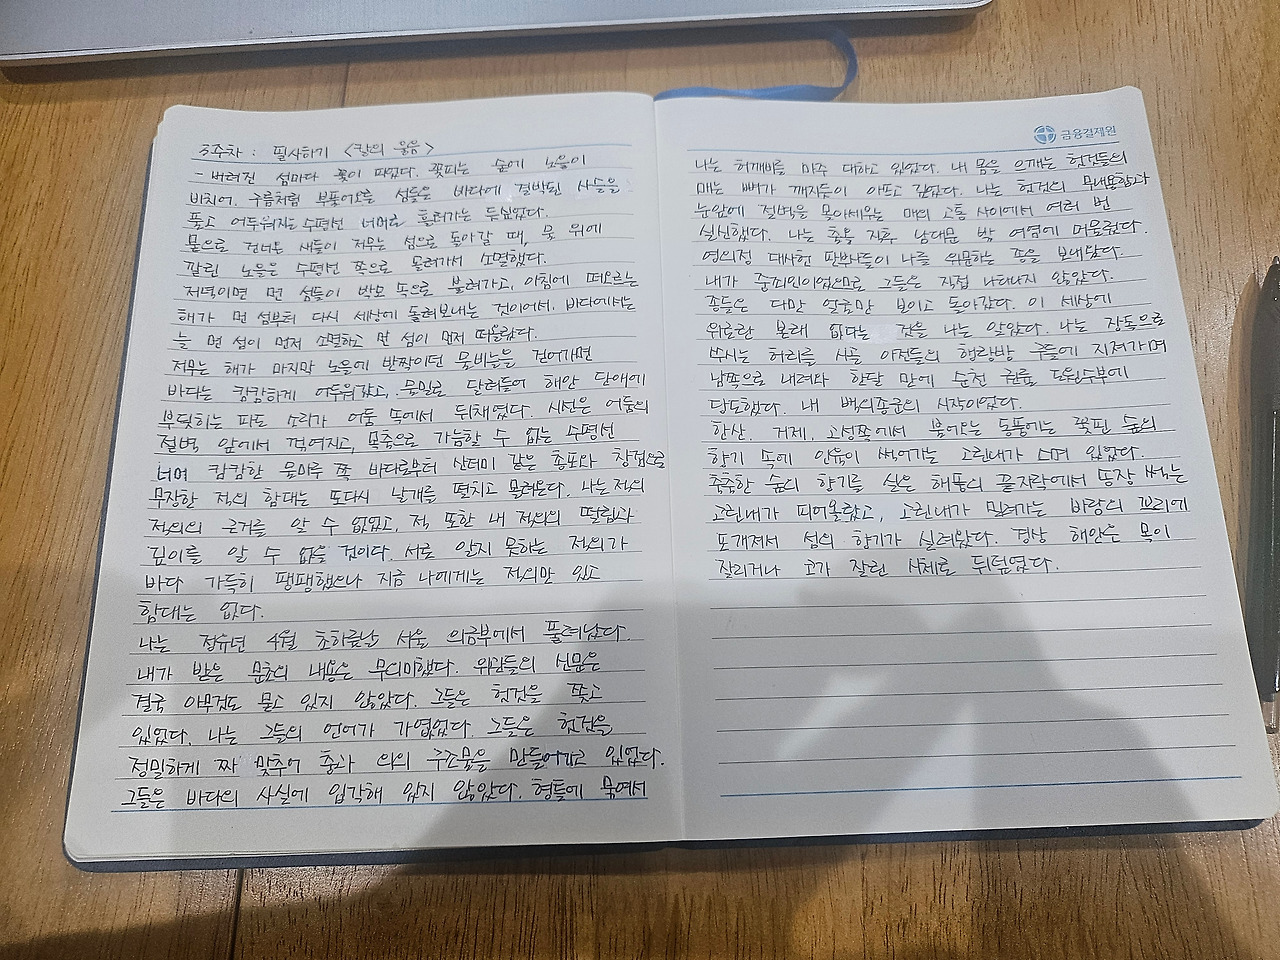 3주차 : 필사하기 <칼의 울음>
- 버려진 섬마다 꽃이 피었다. 꽃피는 숲에 노을이
비치어, 구름처럼 부풀어오른 섬들은 바다에 결박된 사슬을
풀고 어두워지는 수평선 너머로 흘러가는 듯싶었다.
뭍으로 건너온 새들이 저무는 섬으로 돌아갈 때, 물 위에
깔린 노을은 수평선 쪽으로 몰려가서 소멸했다.
저녁이면 먼 섬들이 박모 속으로 불려가고, 아침에 떠오르는
해가 먼 섬부터 다시 세상에 돌려보내는 것이어서, 바다에서는
늘 먼 섬이 먼저 소멸하고 먼 섬이 먼저 떠올랐다.
저무는 해가 마지막 노을에 반짝이던 물비늘을 걷어가면
바다는 캄캄하게 어두워갔고, 밀물로 달려들어 해안 단애에
부딪히는 파도 소리가 어둠 속에서 뒤채였다. 시선은 어둠의
절벽 앞에서 꺾여지고, 목측으로 가늠할 수 없는 수평선
너머 캄캄한 물마루 쪽 바다로부터 산더미 같은 총포와 창검으로
무장한 적의 함대는 또다시 날개를 펼치고 몰려온다. 나는 적의
적의의 근거를 알 수 없었고, 적 또한 내 적의의 떨림과
깊이를 알 수 없을 것이다. 서로 알지 못하는 적의가
바다 가득히 팽팽했으나 지금 나에게는 적의만 있고
함대는 없다.
나는 정유년 4월 초하룻날 서울 의금부에서 풀려났다.
내가 받은 문초의 내용은 무의미했다. 위관들의 신문은
결국 아무것도 묻고 있지 않았다. 그들은 헛것을 쫓고
있었다. 나는 그들의 언어가 가엾었다. 그들은 헛것을
정밀하게 짜 맞추어 충과 의의 구조물을 만들어가고 있었다.
그들은 바다의 사실에 입각해 있지 않았다. 형틀에 묶여서
금융결제원
나는 허깨비를 마주 대하고 있었다. 내 몸을 으깨는 헛것들의
매는 뼈가 깨지듯이 아프고 깊었다. 나는 헛것의 무내용함과
눈앞에 절벽을 몰아세우는 매의 고통 사이에서 여러 번
실신했다. 나는 출옥 직후 남대문 밖 여염에 머물렀다.
영의정 대사헌 판부사들이 나를 위문하는 종을 보내왔다.
내가 중죄인이었으므로 그들은 직접 나타나지 않았다.
종들은 다만 얼굴만 보이고 돌아갔다. 이 세상에
위로란 본래 없다는 것을 나는 알았다. 나는 장독으로
쑤시는 허리를 시골 아전들의 행랑방 구들에 지져가며
남쪽으로 내려와 한달 만에 순천 권률 도원수부에
당도했다. 내 백의종군의 시작이었다.
한산, 거제, 고성쪽에서 불어오는 동풍에는 꽃핀 숲의
향기 속에 인육이 썩어가는 고린내가 스며 있었다.
축축한 숲의 향기를 실은 해풍의 끝자락에서 송장 썩는
고린내가 피어올랐고, 고린내가 밀려가는 바람의 꼬리에
포개져서 섬의 향기가 실려왔다. 경상 해안은 목이
잘리거나 코가 잘린 시체로 뒤덮였다.